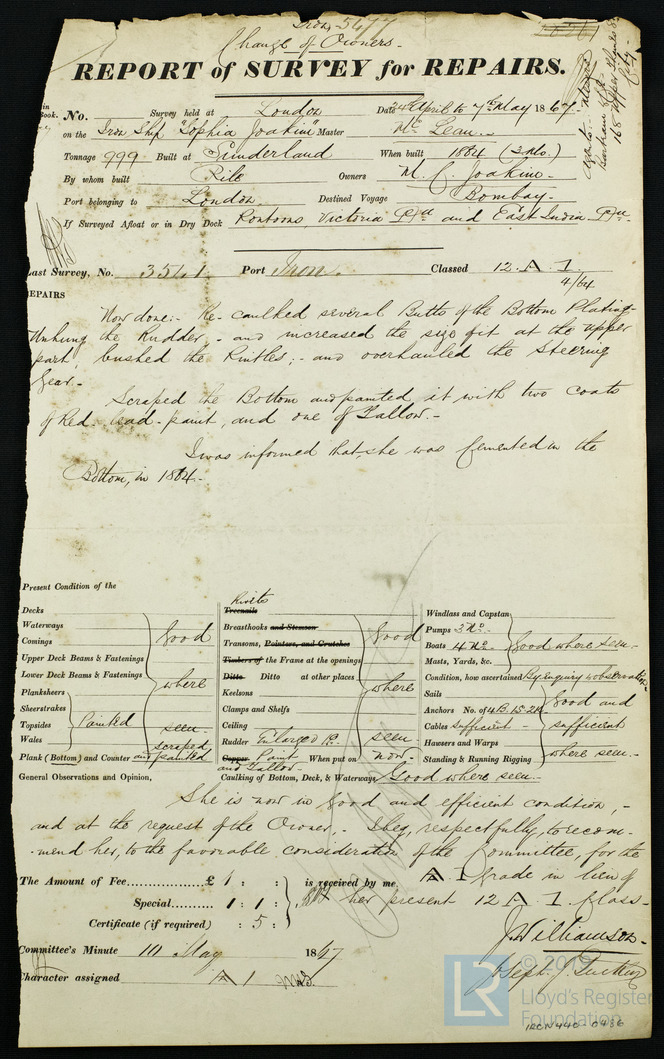 Iron 5477
Change of Owners.
REPORT of SURVEY for REPAIRS.
No. Survey held at London Date 24 April to 7th May 1867
on the Iron Ship "Sophia Joakim" Master Mc Lean
Tonnage 999 Built at Sunderland When built 1864 (3 Mo.)
By whom built Pile Owners M. C. Joakim
Port belonging to London Destined Voyage Bombay
If Surveyed Afloat or in Dry Dock Pontoons Victoria and East India
Last Survey, No. 3541 Port Iron Classed 12 A 1
4/64
REPAIRS
Now done:- Re-caulked several Butts of the Bottom Plating-
Unhung the Rudder, and increased the size of it at the upper
part, bushed the Pintles;- and overhauled the Steering
Gear.-
Scraped the Bottom and painted it with two coats
of Red-lead-paint, and one of Tallow.-
I was informed that, she was Cemented in the
Bottom, in 1864.-
Present Condition of the
Decks
Waterways
Comings
Upper Deck Beams & Fastenings
Lower Deck Beams & Fastenings
Good where seen
Planksheers
Sheerstrakes
Topsides
Wales
Painted
Plank (Bottom) and Counter scraped and painted
Rivets
Treenails
Breasthooks and Stemson
Transoms, Pointers, and Crutches
Timbers of the Frame at the openings
Ditto Ditto at other places
Keelsons
Clamps and Shelfs
Ceiling
Rudder Enlarged
Good where seen
Copper Paint and Tallow When put on now
Caulking of Bottom, Deck, & Waterways Good where seen.
Windlass and Capstan
Pumps 3 No.
Boats 4 No.
Masts, Yards, &c.
Good where seen
Condition, how ascertained By enquiry & observation
Sails
Anchors No. of 4B. 1S. 2K
Cables Sufficient
Hawsers and Warps
Standing & Running Rigging
Good and sufficient where seen
General Observations and Opinion,
She is now in good and efficient condition,-
and at the request of the Owner, I beg, respectfully, to recom-
mend her, to the favorable consideration of the Committee, for the
A 1 grade in lieu of
her present 12 A 1 Class
The Amount of Fee............... £ 1 : :
is received by me,
Special......... 1 : 1 :
Certificate (if required) : 5 :
J. Williamson
Committee's Minute 10 May 1867
Character assigned A 1
© 2019
LR
Lloyd's Register
Foundation
IRON 440-0436